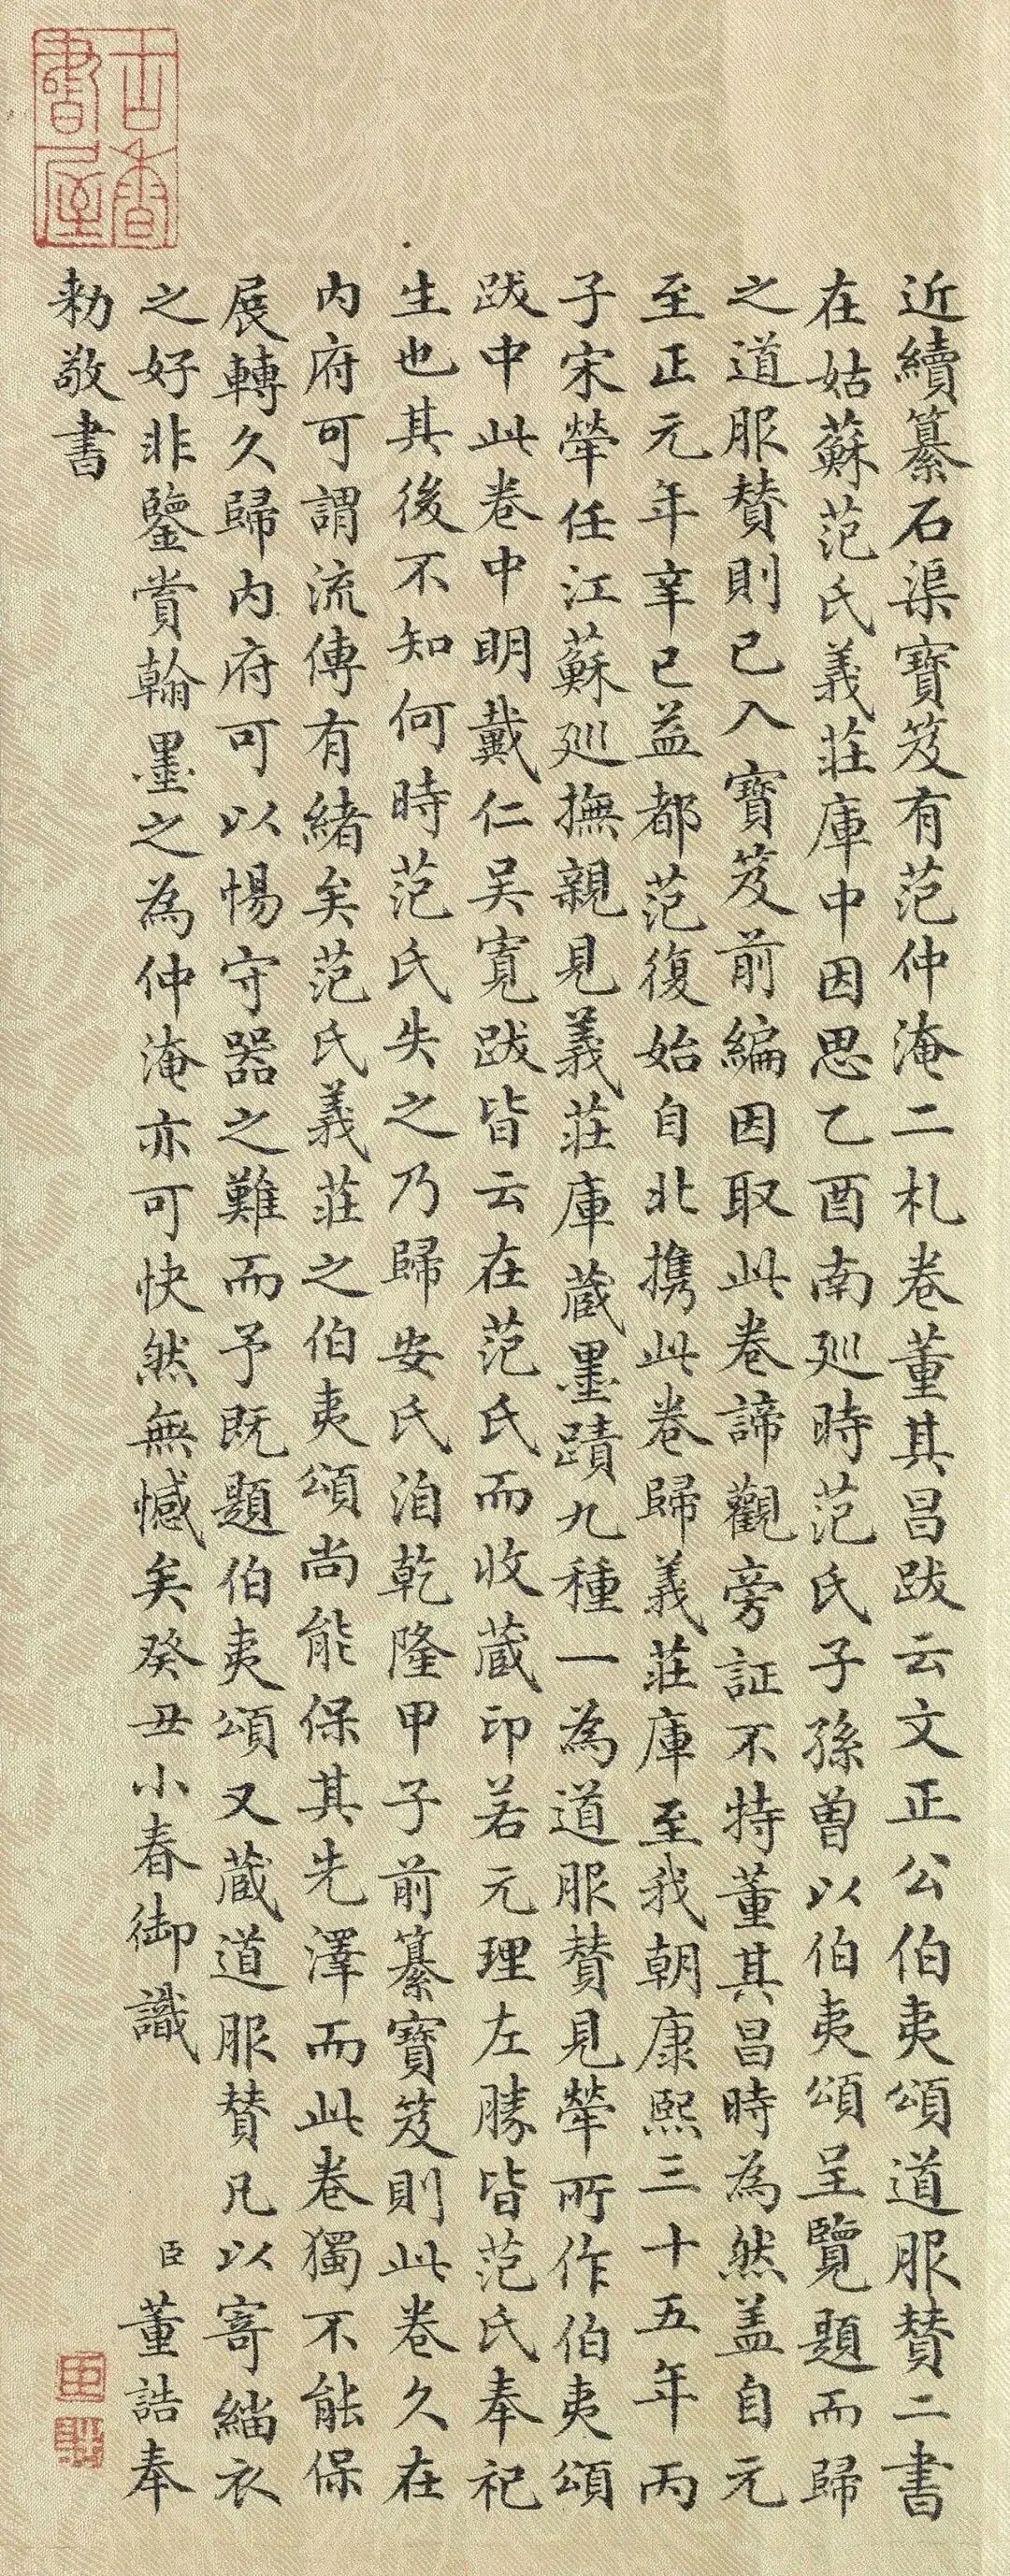 近續纂石渠寶笈有范仲淹二札卷董其昌跋云文正公伯夷頌道服賛二書
在姑蘇范氏義莊庫中因思乙酉南廵時范氏子孫曽以伯夷頌呈覽題而歸
之道服賛則已入寶笈前編因取此卷諦觀旁証不特董其昌時為然盖自元
至正元年辛巳益都范復始自北携此卷歸義莊庫至我朝康熙三十五年丙
子宋犖任江蘇廵撫親見義莊庫蔵墨蹟九種一為道服賛見犖所作伯夷頌
跋中此卷中明戴仁吴寛跋皆云在范氏而收蔵印若元理左勝皆范氏奉祀
生也其後不知何時范氏失之乃歸安氏洎乾隆甲子前纂寶笈則此卷久在
内府可謂流傳有緒矣范氏義莊之伯夷頌尚能保其先澤而此卷獨不能保
展轉久歸内府可以惕守器之難而予既題伯夷頌又蔵道服賛凡以寄緇衣
之好非鑒賞翰墨之為仲淹亦可快然無憾矣癸丑小春御識
臣董誥奉
勑敬書
古香書屋